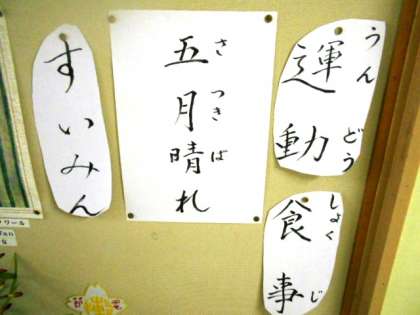 運動
うんどう
食事
しょくじ
五月晴れ
さつきば
すいみん